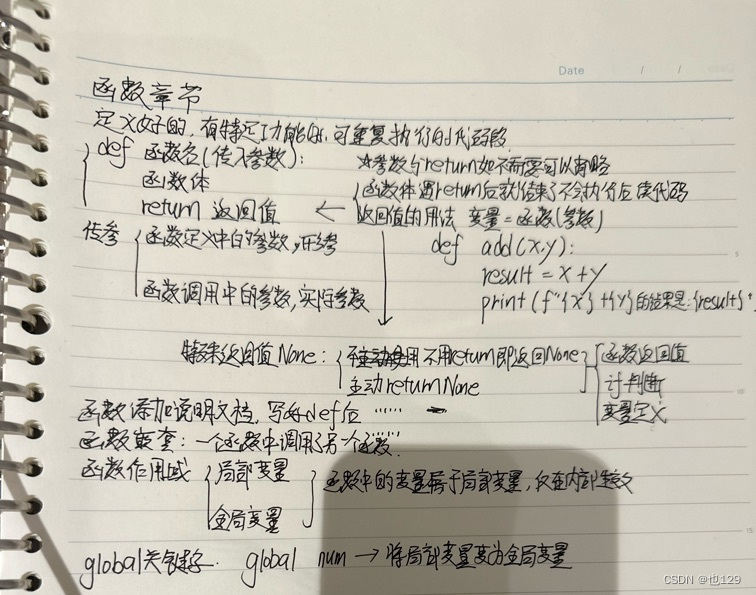 Date / /
函数章节
定义好的，有特定功能的，可重复执行的代码段
def 函数名(传入参数): ☆参数与return如不需要可以省略
函数体 函数体遇return后就结束了不会执行后续代码
return 返回值 ← 返回值的用法 变量=函数(参数)
传参 函数定义中的参数，形参 def add(x,y):
result = x+y
函数调用中的参数，实际参数 print(f"{x}+{y}的结果是:{result}"
特殊返回值None: 不用return即返回None 函数返回值
主动return None 讨判断
变量定义
函数添加说明文档，写好def后 """"""
函数嵌套：一个函数中调用了另一个函数
函数作用域 局部变量 函数中的变量属于局部变量，仅在内部生效
全局变量
global关键字. global num → 将局部变量变为全局变量
CSDN @也129